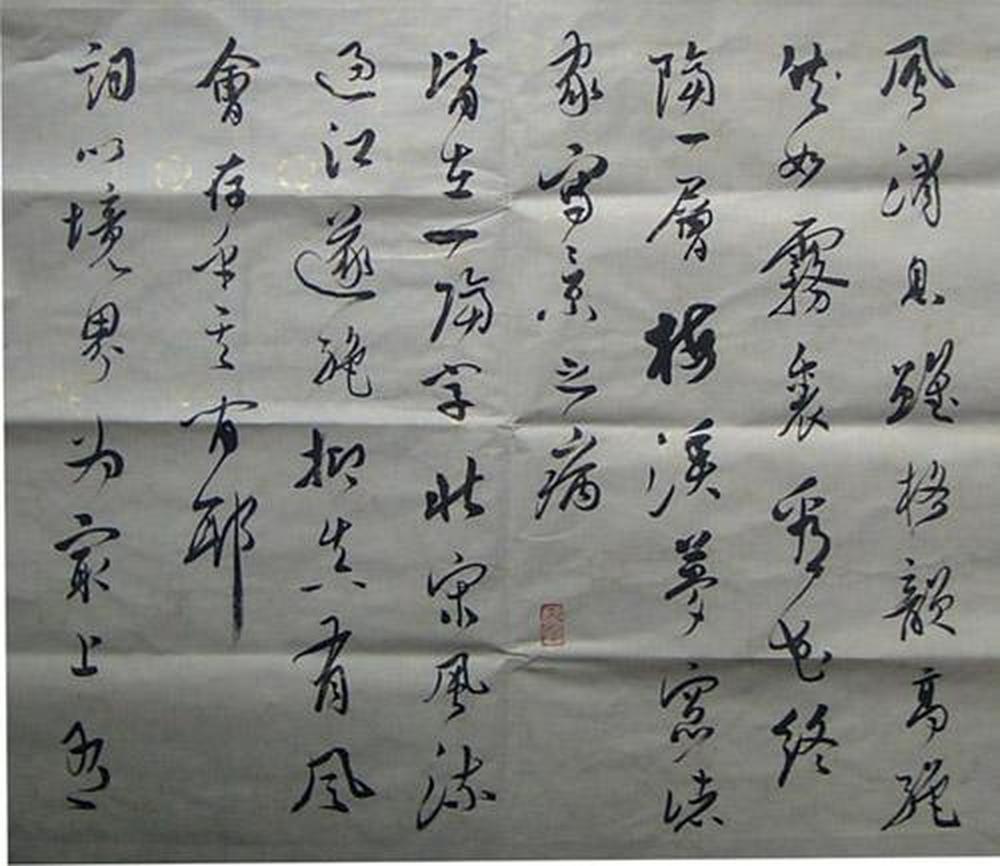 風消息雖格韻高絕
然如霧裏看花終
隔一層梅溪夢窓諸
家寫景之病
皆在一隔字北宋風流
過江遂絕抑真有風
會存乎其間耶
詞以境界為最上有